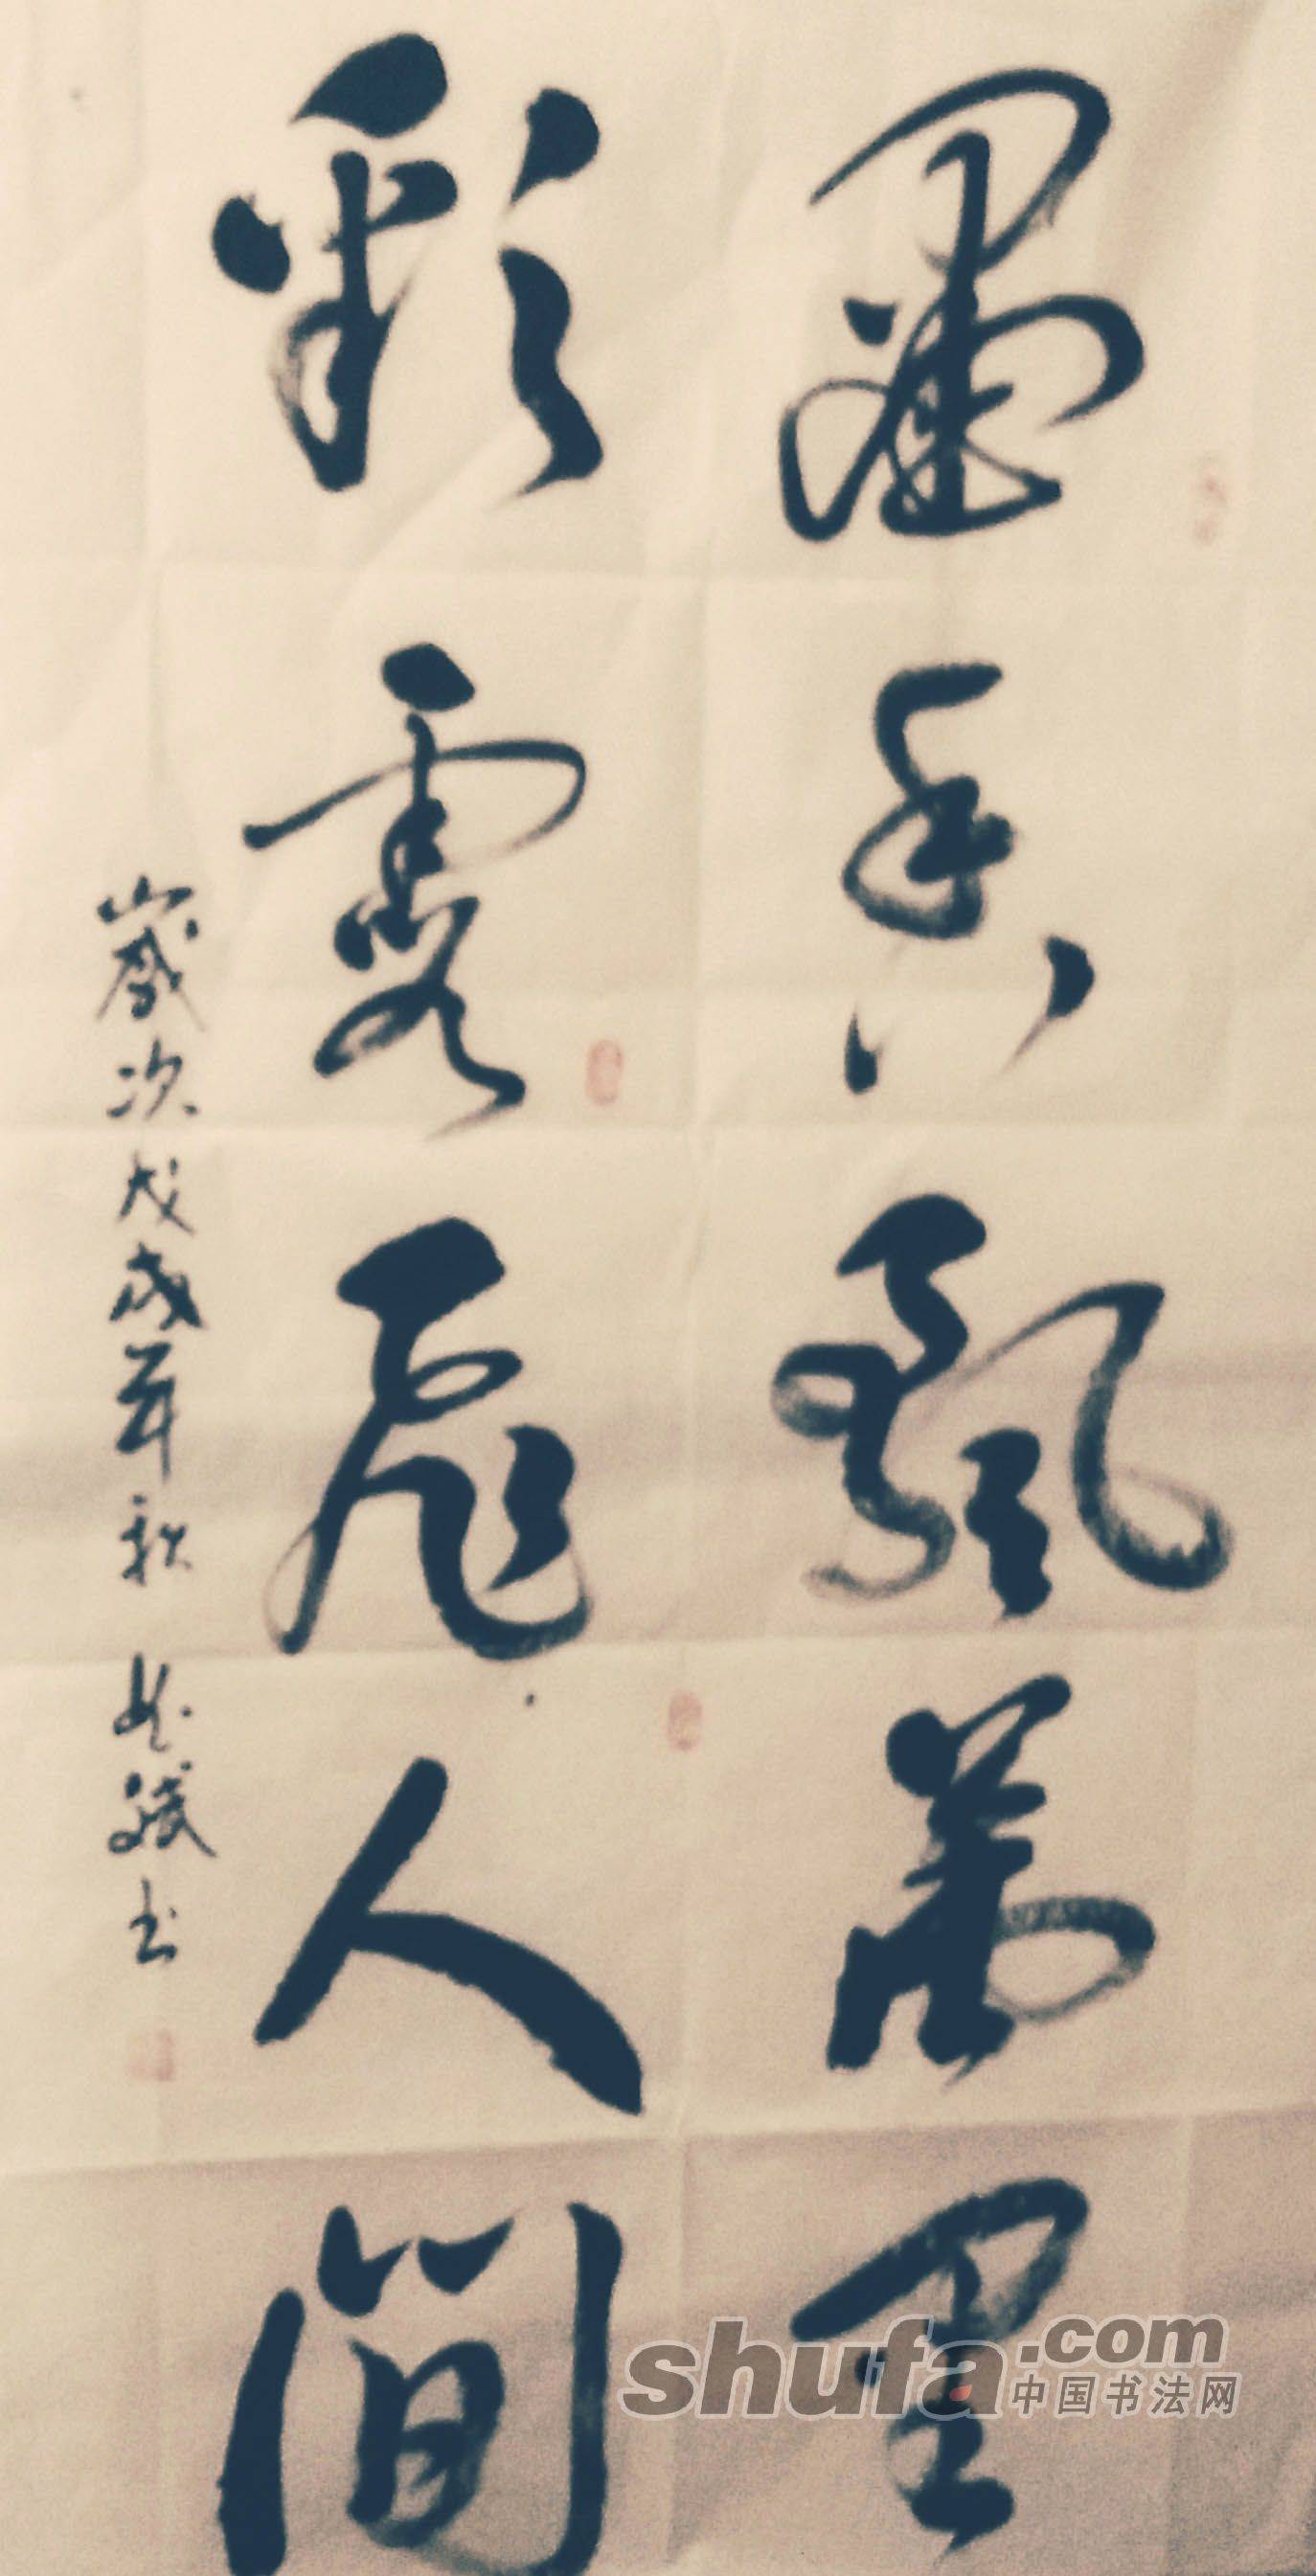 墨香飄萬里
彩霞飛人間
歲次戊戌年秋 书
shufa.com
中国书法网